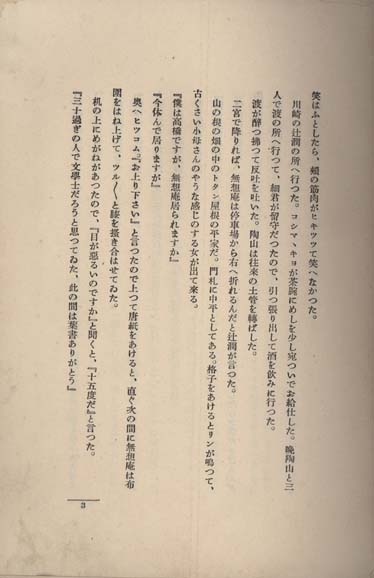 笑はふとしたら、頰の筋肉がヒキツツて笑へなかつた。
川崎の辻潤の所へ行つた。コシマヽキヨが茶碗にめしを少し宛ついでお給仕した。晩陶山と三
人で波の所へ行つて、細君が留守だつたので、引つ張り出して酒を飲みに行つた。
波が醉つ拂つて反吐を吐いた。陶山は往來の土管を轉ばした。
二宮で降りれば、無想庵は停車場から右へ折れるんだと辻潤が言つた。
山の根の畑の中のトタン屋根の平家だ。門札に中平としてある。格子をあけるとリンが鳴つて、
古くさい小母さんのやうな感じのする女が出て來る。
『僕は高橋ですが、無想庵居られますか』
『今休んで居りますが』
奧へヒツコム『お上り下さい』と言つたので上つて唐紙をあけると、直ぐ次の間に無想庵は布
團をはね上げて、ツル〳〵と膝を搔き合はせてゐた。
机の上にめがねがあつたので、『目が惡るいのですか』と聞くと、『十五度だ』と言つた。
『三十過ぎの人で文學士だろうと思つてゐた、此の間は葉書ありがとう』
3